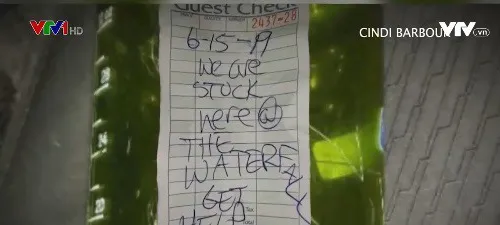 VTV1 HD
CINDI BARBOUR
VTV.vn
Guest Check
2437-28
6-15-19
we are
STUCK
here @
THE
WATERF
GET
HELP